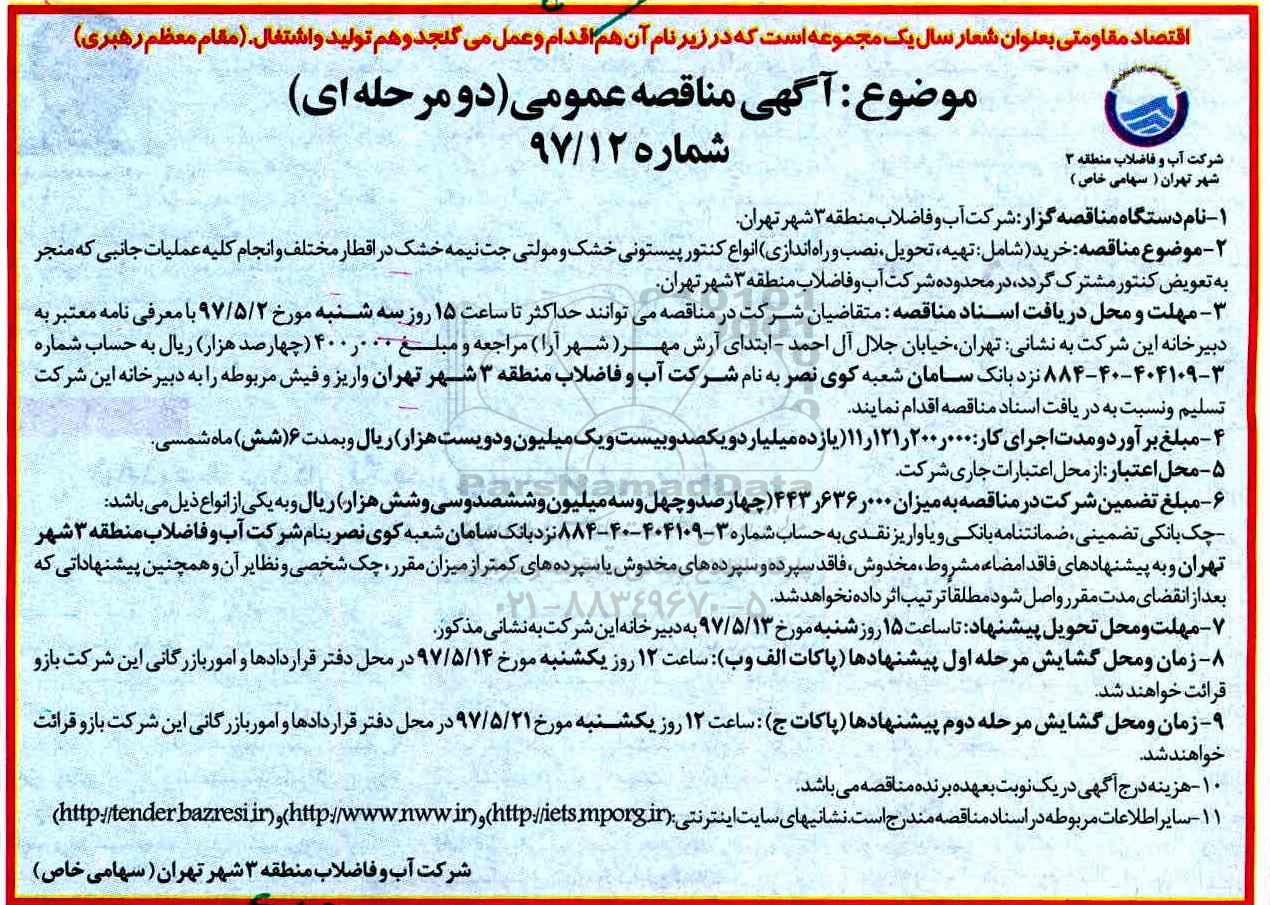 اقتصاد مقاومتی بعنوان شعار سال یک مجموعه است که در زیر نام آن هم اقدام و عمل می گنجد و هم تولید و اشتغال. (مقام معظم رهبری)
موضوع : آگهی مناقصه عمومی (دو مرحله ای)
شماره ۹۷/۱۲
شرکت آب و فاضلاب منطقه ۳
شهر تهران ( سهامی خاص )
۱- نام دستگاه مناقصه گزار : شرکت آب و فاضلاب منطقه ۳ شهر تهران.
۲- موضوع مناقصه: خرید (شامل: تهیه، تحویل، نصب و راه اندازی) انواع کنتور پیستونی خشک و مولتی جت نیمه خشک در اقطار مختلف و انجام کلیه عملیات جانبی که منجر
به تعویض کنتور مشترک گردد، در محدوده شرکت آب و فاضلاب منطقه ۳ شهر تهران.
۳- مهلت و محل دریافت اسناد مناقصه : متقاضیان شرکت در مناقصه می توانند حداکثر تا ساعت ۱۵ روز سه شنبه مورخ ۹۷/۵/۲ با معرفی نامه معتبر به
دبیرخانه این شرکت به نشانی: تهران، خیابان جلال آل احمد - ابتدای آرش مهر ( شهر آرا ) مراجعه و مبلغ ۴۰۰ر۰۰۰ (چهارصد هزار) ریال به حساب شماره
۳-۴۰۴۱۰۹-۴۰-۸۸۴ نزد بانک سامان شعبه کوی نصر به نام شرکت آب و فاضلاب منطقه ۳ شهر تهران واریز و فیش مربوطه را به دبیرخانه این شرکت
تسلیم ونسبت به دریافت اسناد مناقصه اقدام نمایند.
۴- مبلغ برآورد و مدت اجرای کار: ۱۱ر۱۲۱ر۲۰۰ر۰۰۰ (یازده میلیارد و یکصد و بیست و یک میلیون و دویست هزار) ریال و بمدت ۶ (شش) ماه شمسی.
۵- محل اعتبار : از محل اعتبارات جاری شرکت.
۶- مبلغ تضمین شرکت در مناقصه به میزان ۴۴۳ر۶۳۶ر۰۰۰ (چهارصد و چهل و سه میلیون و ششصد و سی و شش هزار) ریال و به یکی از انواع ذیل می باشد:
- چک بانکی تضمینی، ضمانتنامه بانکی و یا واریز نقدی به حساب شماره ۳-۴۰۴۱۰۹-۴۰-۸۸۴ نزد بانک سامان شعبه کوی نصر بنام شرکت آب و فاضلاب منطقه ۳ شهر
تهران و به پیشنهادهای فاقد امضاء، مشروط، مخدوش، فاقد سپرده و سپرده های مخدوش یا سپرده های کمتر از میزان مقرر، چک شخصی و نظایر آن و همچنین پیشنهاداتی که
بعد از انقضای مدت مقرر واصل شود مطلقاً ترتیب اثر داده نخواهد شد.
۷- مهلت و محل تحویل پیشنهاد: تا ساعت ۱۵ روز شنبه مورخ ۹۷/۵/۱۳ به دبیرخانه این شرکت به نشانی مذکور.
۸- زمان و محل گشایش مرحله اول پیشنهادها (پاکات الف و ب): ساعت ۱۲ روز یکشنبه مورخ ۹۷/۵/۱۴ در محل دفتر قراردادها و امور بازرگانی این شرکت باز و
قرائت خواهند شد.
۹- زمان و محل گشایش مرحله دوم پیشنهادها (پاکات ج) : ساعت ۱۲ روز یکشنبه مورخ ۹۷/۵/۲۱ در محل دفتر قراردادها و امور بازرگانی این شرکت باز و قرائت
خواهند شد.
۱۰- هزینه درج آگهی در یک نوبت بعهده برنده مناقصه می باشد.
۱۱- سایر اطلاعات مربوطه در اسناد مناقصه مندرج است. نشانیهای سایت اینترنتی: (http://iets.mporg.ir) و (http://www.nww.ir) و (http://tender.bazresi.ir)
شرکت آب و فاضلاب منطقه ۳ شهر تهران ( سهامی خاص )
ParsNamadData
۰۲۱-۸۸۳۴۹۶۷۰-۵